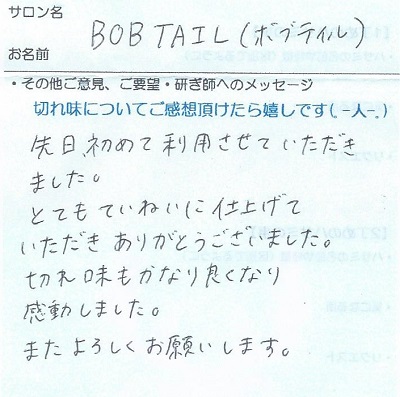 サロン名
BOB TAIL(ボブテイル)
お名前
・その他ご意見、ご要望・研ぎ師へのメッセージ
切れ味についてご感想頂けたら嬉しです(.-人-.)
先日、初めて利用させていただき
ました。
とてもていねいに仕上げて
いただきありがとうございました。
切れ味もかなり良くなり
感動しました。
またよろしくお願いします。